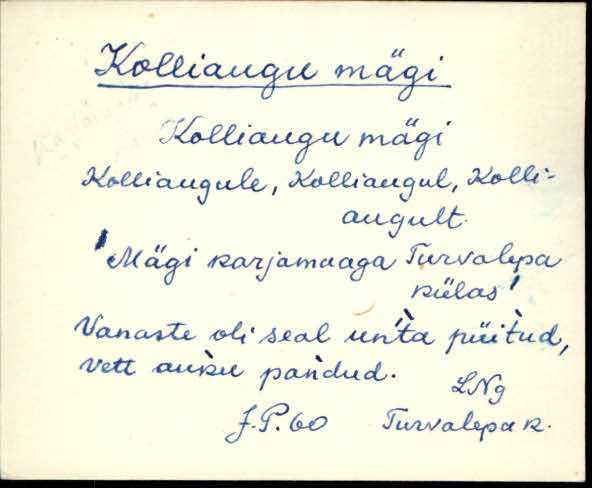 Kolliaugu mägi
Kolliaugu mägi
Kolliaugule, Kolliaugul, Kolli-
augult.
'Mägi karjamaaga Turvalepa
külas'
Vanaste oli seal uǹta püit̀ud,
vett auk̀u paǹdud.
LNg
J.P. 60 Turvalepa k.